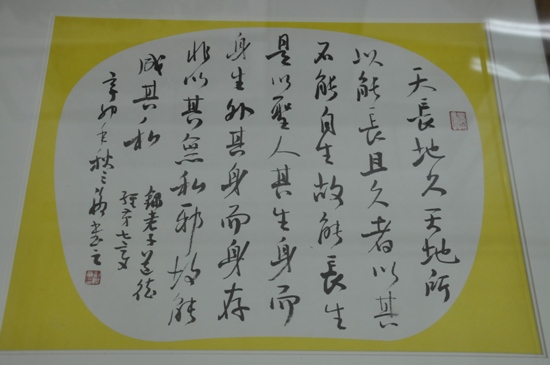 天長地久天地所
以能長且久者以其
不能自生故能長生
是以聖人其生身而
身生外其身而身存
非以其無私邪故能
成其私
錄老子道德
經第七章
辛卯年秋